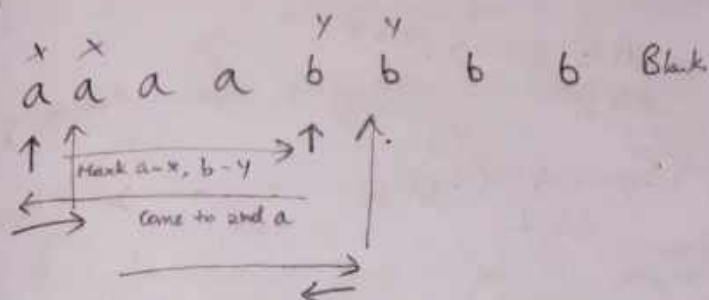 x x y y
a a a a b b b b Blank
Mark a-x, b-y
Come to 2nd a